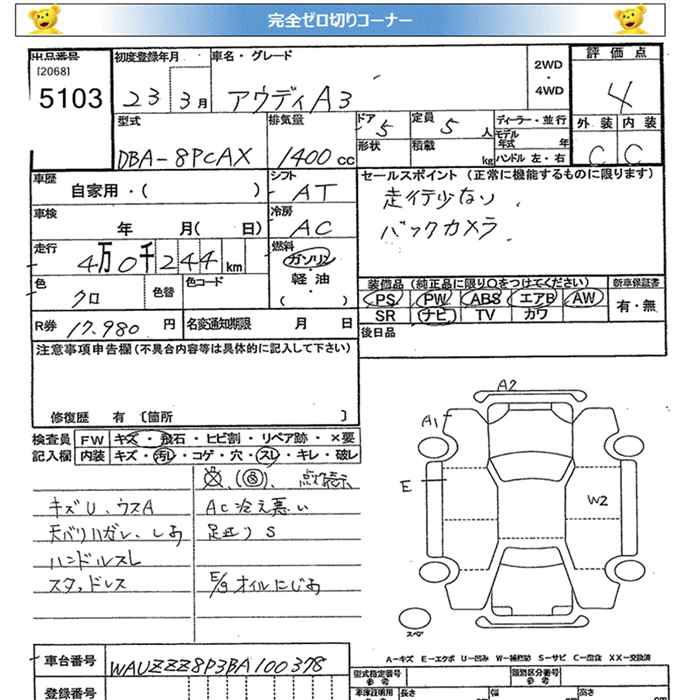 完全ゼロ切りコーナー
出品番号 初度登録年月 車名・グレード 2WD・4WD 評価点
[2068]
5103 23 3月 アウディA3 4
型式 排気量 ドア 5 定員 5 人 ディーラー・並行 外装 内装
DBA-8PCAX 1400 cc 形状 積載 kg モデル年式 年 ハンドル 左・右 C C
車歴 シフト セールスポイント (正常に機能するものに限ります)
自家用・( ) AT 走行少ない
車検 冷房 バックカメラ
年 月( 日) AC
走行 燃料
4万0千244km ガソリン・軽油・( )
色 色替 色コード 装備品 (純正品に限り○をつけてください) 新車保証書
クロ PS PW ABS エアB AW 有・無
SR ナビ TV カワ
R券 17,980 円 名変通知期限 月 日 後日品
注意事項申告欄 (不具合内容等は具体的に記入して下さい)
修復歴 有 [箇所 ]
検査員 FW キズ・飛石・ヒビ割・リペア跡・×要
記入欄 内装 キズ・汚レ・コゲ・穴・スレ・キレ・破レ
点灯表示
キズU、ウスA AC冷え悪い
天バリハガレ、しみ 足廻りS
ハンドルスレ
スタッドレス E/gオイルにじみ
A2
A1
E
W2
スペア
A-キズ E-エクボ U-凹み W-補修跡 S-サビ C-腐食 XX-交換済
車台番号 WAUZZZ8P3BA100378 型式指定番号 参考 類別区分番号 参考
登録番号 車庫証明用 参考 長さ 幅 高さ